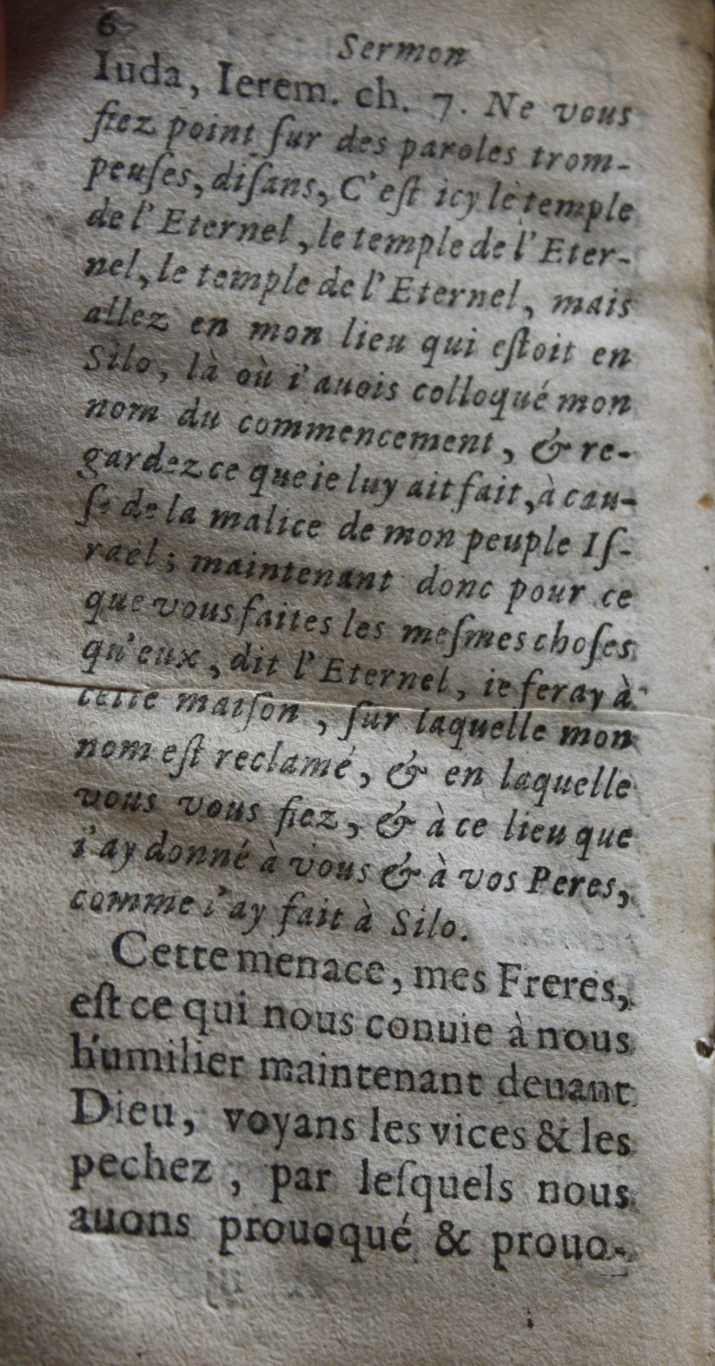 6 Sermon
Iuda, Ierem. ch. 7. Ne vous
fiez point ſur des paroles trom-
peuſes, diſans, C'eſt icy le temple
de l'Eternel, le temple de l'Eter-
nel, le temple de l'Eternel, mais
allez en mon lieu qui eſtoit en
Silo, là où i'auois colloqué mon
nom du commencement, & re-
gardez ce que ie luy ait fait, à cau-
ſe de la malice de mon peuple Iſ-
rael; maintenant donc pour ce
que vous faites les meſmes choſes
qu'eux, dit l'Eternel, ie feray à
cette maiſon, ſur laquelle mon
nom eſt reclamé, & en laquelle
vous vous fiez, & à ce lieu que
i'ay donné à vous & à vos Peres,
comme i'ay fait à Silo.
Cette menace, mes Freres,
eſt ce qui nous conuie à nous
humilier maintenant deuant
Dieu, voyans les vices & les
pechez, par leſquels nous
auons prouoqué & prouo-